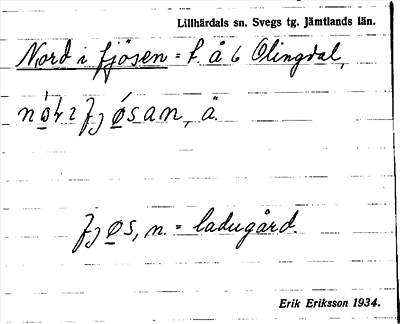 Lillhärdals sn. Svegs tg. Jämtlands län.
Nord i fjösen = f. å 6 Olingdal,
fjøsan, å.
fjøs, n. = ladugård.
Erik Eriksson 1934.